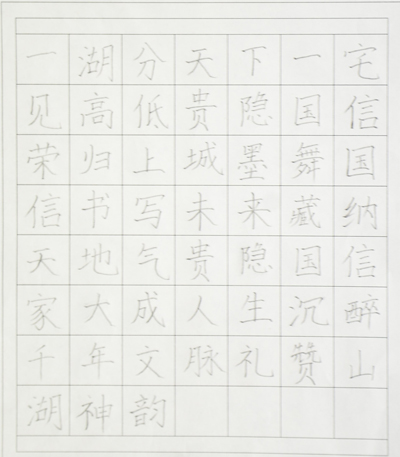 一湖分天下一宅
见高低贵隐国信
荣归上城墨舞国
信书写未来藏纳
天地气贵隐国信
家大成人生沉醉
千年文脉礼赞山
湖神韵